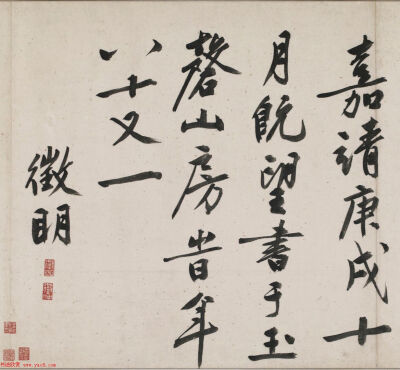 嘉靖庚戌十
月既望書于玉
磬山房昔年
八十又一
徵明
www.yac8.com